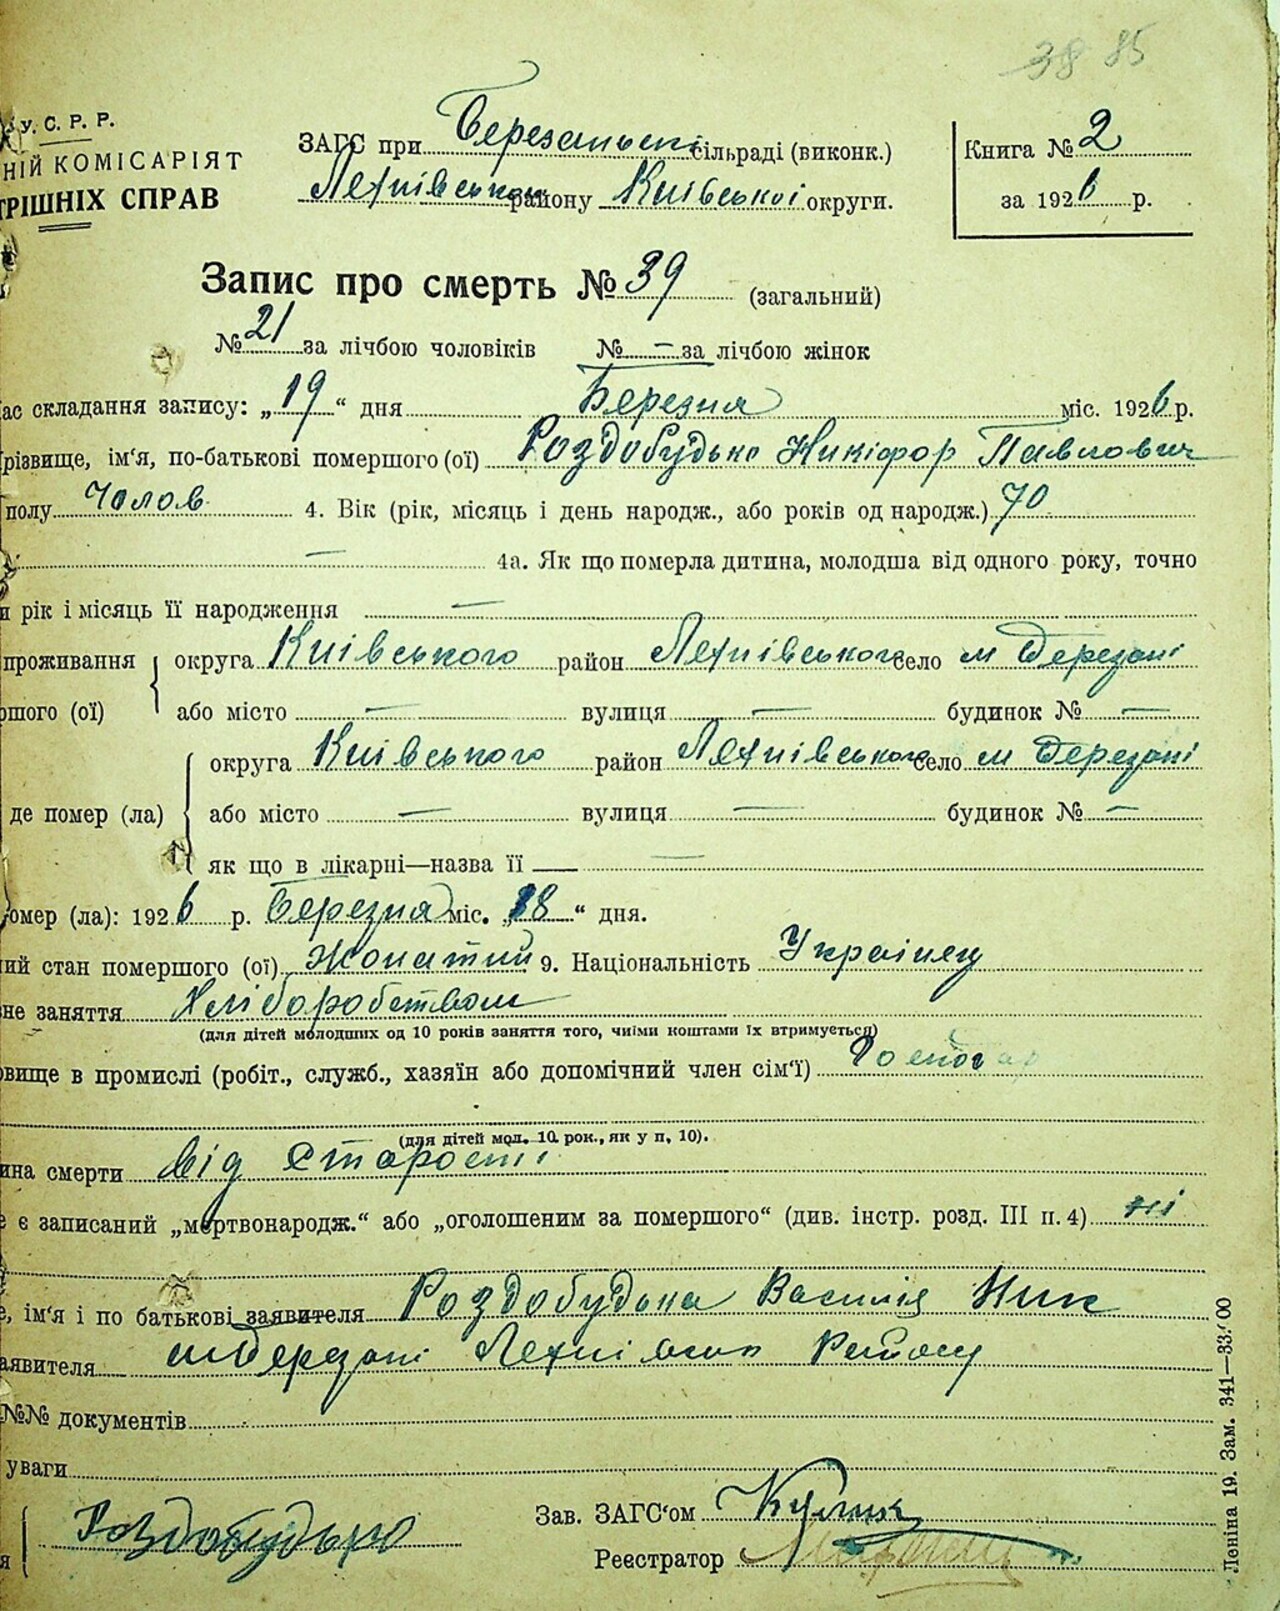 38 85
У. С. Р. Р.
НІЙ КОМІСАРІЯТ
ТРІШНІХ СПРАВ
ЗАГС при Березанські сільраді (виконк.)
району Київської округи.
Книга № 2
за 1926 р.
Запис про смерть № 39 (загальний)
№ 21 за лічбою чоловіків № — за лічбою жінок
ас складання запису: „19“ дня Березня міс. 1926 р.
різвище, ім‘я, по-батькові помершого (ої) Роздобудько Никіфор Павлович
полу Чолов 4. Вік (рік, місяць і день народж., або років од народж.) 70
— 4а. Як що померла дитина, молодша від одного року, точно
и рік і місяць її народження —
проживання округа Київського район село м Березані
ршого (ої) або місто — вулиця — будинок № —
округа Київського район село м Березані
де помер (ла) або місто — вулиця — будинок № —
як що в лікарні—назва її —
омер (ла): 1926 р. Березня міс. „18“ дня.
ний стан помершого (ої) Жонатий 9. Національність Українец
не заняття Хліборобством
(для дітей молодших од 10 років заняття того, чиїми коштами їх втримується)
овище в промислі (робіт., служб., хазяїн або допомічний член сім‘ї) Господар
(для дітей мол. 10 рок., як у п, 10).
ина смерти від старости
е є записаний „мертвонародж.“ або „оголошеним за помершого“ (див. інстр. розд. III п. 4) ні
е, ім‘я і по батькові заявителя Роздобудька Василія Ник
аявителя м Березані Району
№№ документів
уваги
Роздобудько
Зав. ЗАГС‘ом Кулик
Реєстратор
Леніна 19. Зам. 341—33.